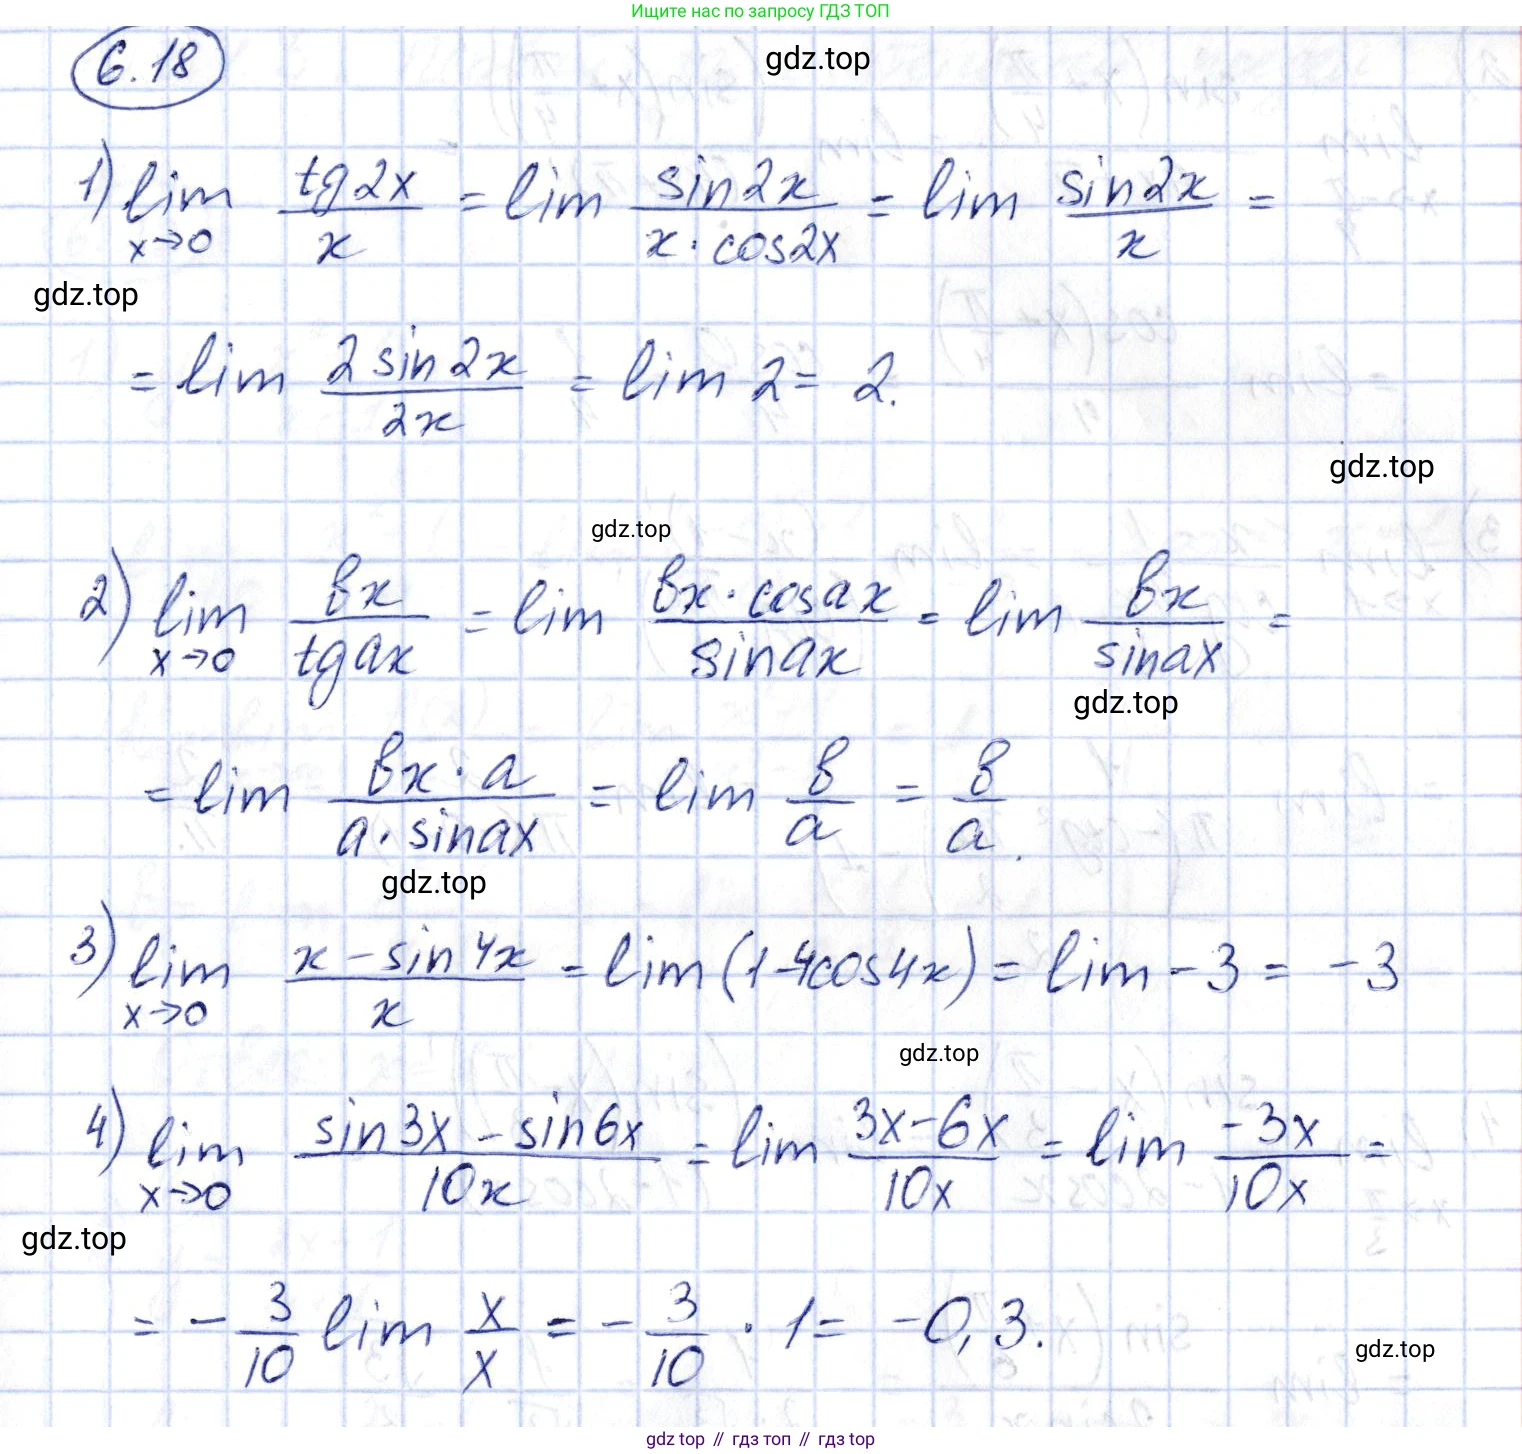 Ищите нас по запросу ГДЗ ТОП
6.18
gdz.top
1) lim x→0 tg2x/x = lim sin2x/(x·cos2x) = lim sin2x/x =
gdz.top
= lim 2sin2x/2x = lim 2 = 2.
gdz.top
gdz.top
2) lim x→0 bx/tgax = lim bx·cosax/sinax = lim bx/sinax =
gdz.top
= lim bx·a/(a·sinax) = lim b/a = b/a.
gdz.top
3) lim x→0 (x-sin4x)/x = lim(1-4cos4x) = lim -3 = -3
gdz.top
4) lim x→0 (sin3x-sin6x)/10x = lim (3x-6x)/10x = lim -3x/10x =
gdz.top
= -3/10 lim x/x = -3/10 · 1 = -0,3.
gdz.top
gdz top // гдз топ // гдз top